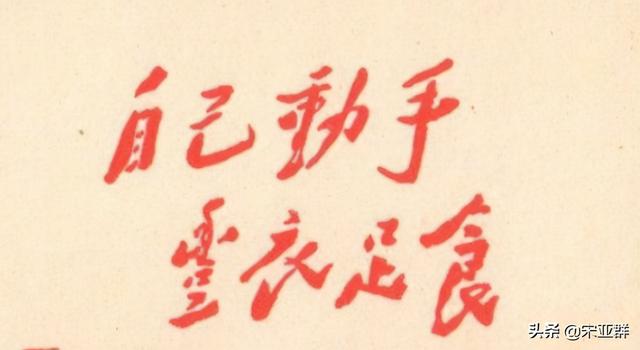 自己動手
豐衣足食
头条 @宋亚群